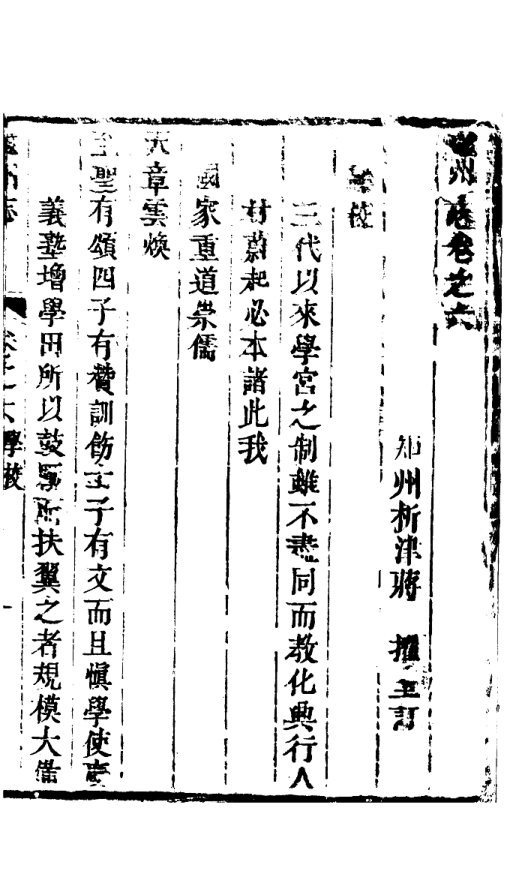 州志卷之六
知州析津蔣　擢重訂
學校
三代以來學宮之制雖不盡同而教化興行人
材蔚起必本諸此我
國家重道崇儒
天章雲煥
至聖有頌四子有贊訓飭士子有文而且愼學使
義塾增學田所以鼓　所扶翼之者規模大備
卷之六學校